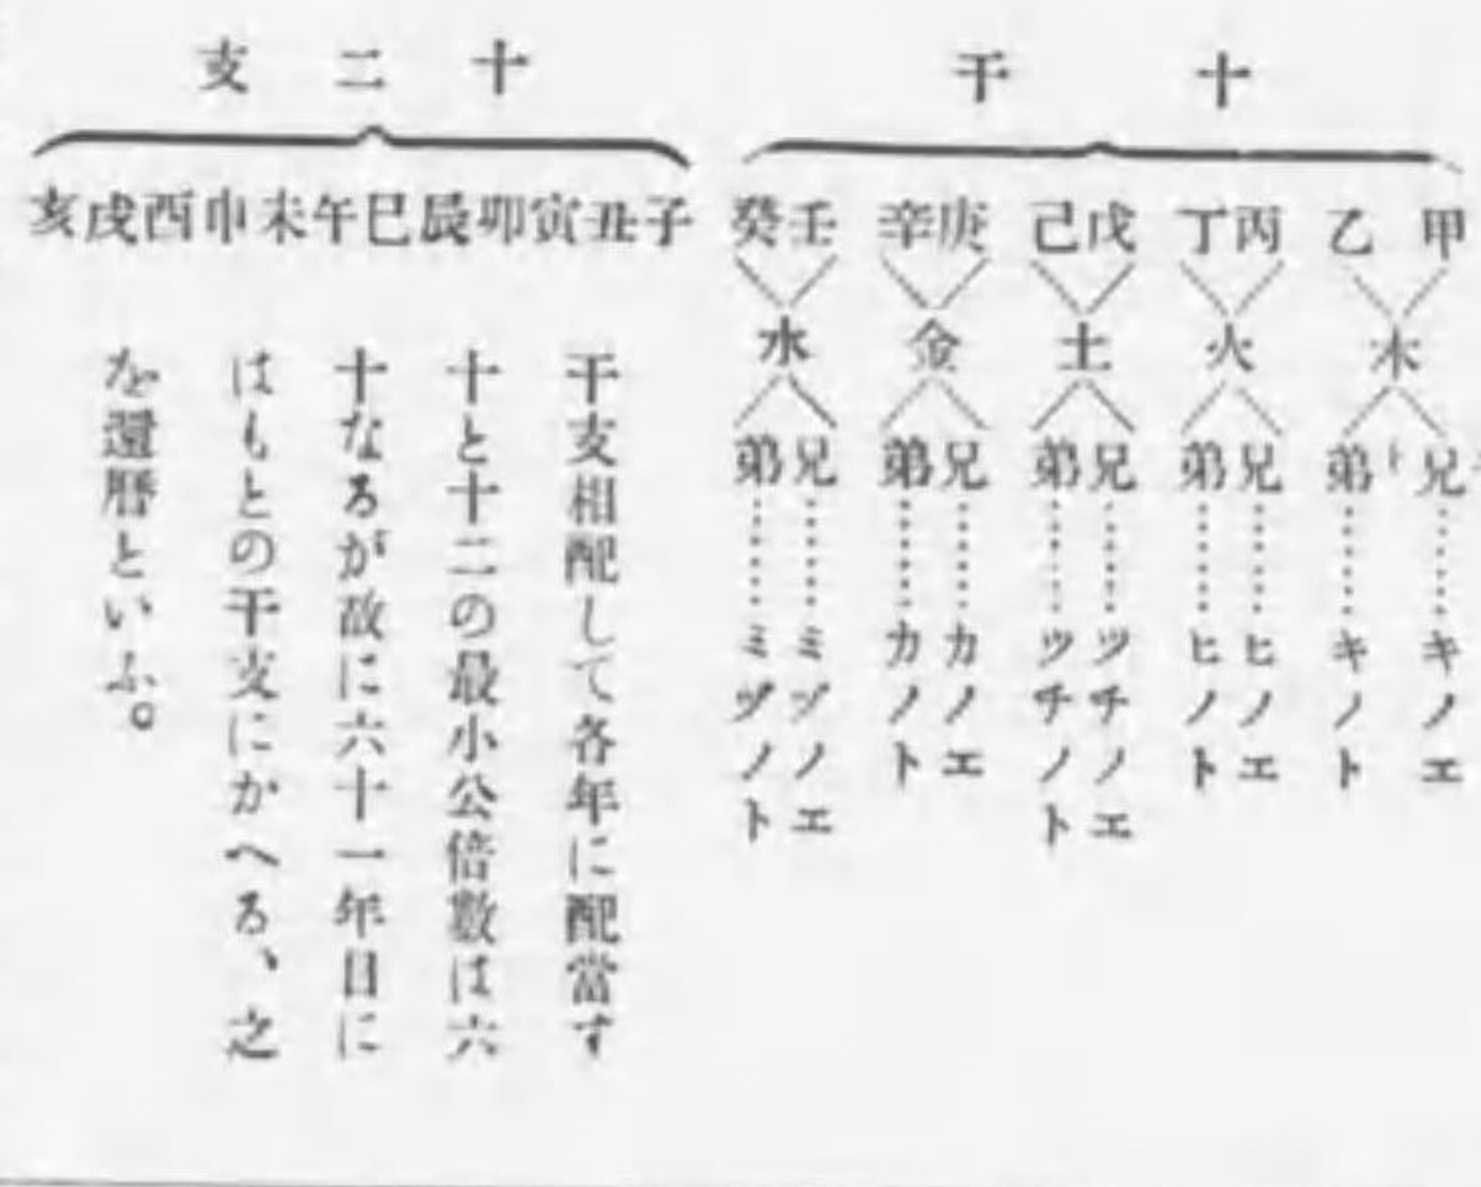 十干
甲乙 丙丁 戊己 庚辛 壬癸
木 火 土 金 水
兄ト弟 兄弟 兄弟 兄弟 兄弟
キノエ
キノト
ヒノエ
ヒノト
ツチノエ
ツチノト
カノエ
カノト
ミヅノエ
ミヅノト
十二支
子丑寅卯辰巳午未申酉戌亥
干支相配して各年に配當す
十と十二の最小公倍數は六
十なるが故に六十一年目に
はもとの干支にかへる、之
を還曆といふ。